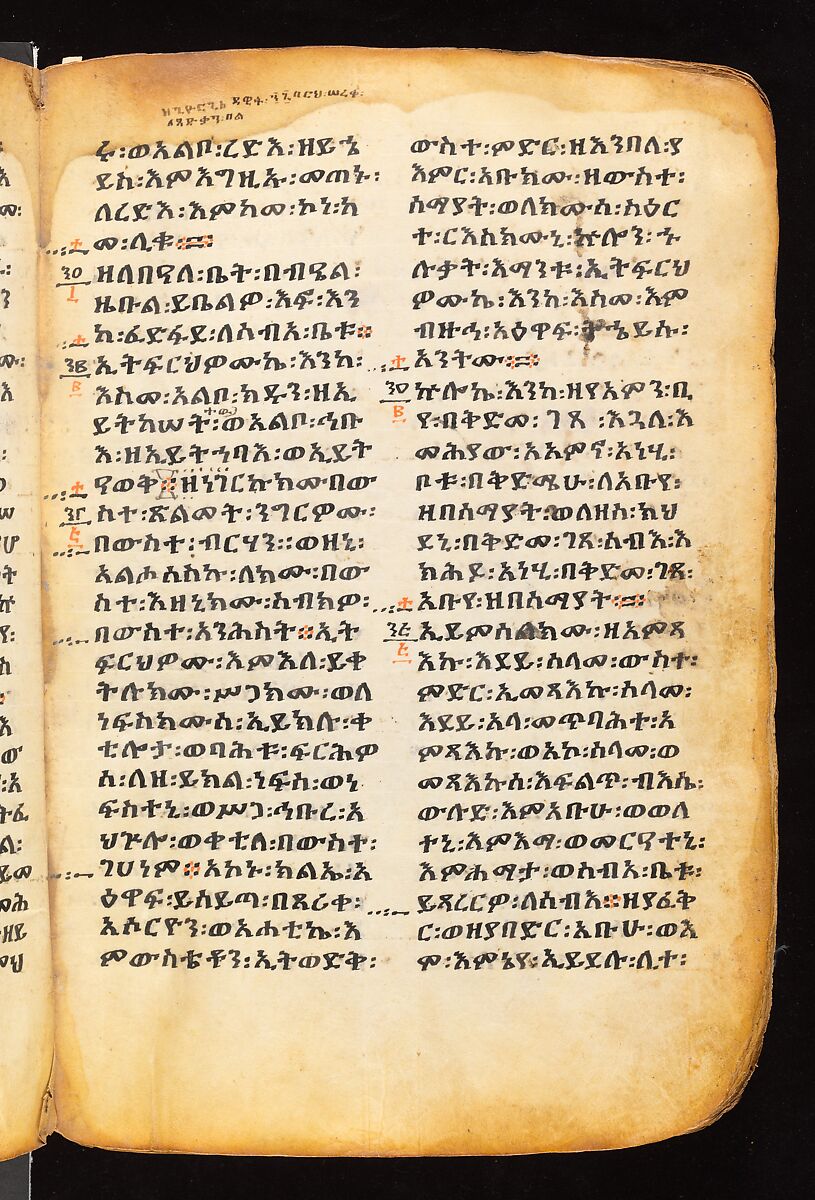 ሩ፡ወአልቦ፡ረድእ፡ዘይኄ
ይስ፡እምእግዚኡ፡መጠኑ፡
ለረድእ፡እምከመ፡ኮነ፡ከ
መ፡ሊቁ፨
ዘለበዓለ፡ቤት፡በብዔል፡
ዜቡል፡ይቤልዎ፡እፎ፡እን
ከ፡ፈድፋደ፡ለሰብአ፡ቤቱ።
ኢትፍርህዎሙኬ፡እንከ፡
እስመ፡አልቦ፡ክዱን፡ዘኢ
ይትከሠት፡ወአልቦ፡ኅቡ
እ፡ዘኢይትኅባእ፡ወኢይት
ዓወቅ።ዘነገርኩክሙ፡በው
ስተ፡ጽልመት፡ንግርዎሙ፡
በውስተ፡ብርሃን።ወዘኒ፡
አልሖሰስኩ፡ለክሙ፡በው
ስተ፡እዘኒክሙ፡ስብክዎ፡
በውስተ፡አንሕስት።ኢት
ፍርህዎሙ፡እምእለ፡ይቀ
ትሉክሙ፡ሥጋክሙ፡ወለ
ነፍስክሙሰ፡ኢይክሉ፡ቀ
ቲሎታ፡ወባሕቱ፡ፍርሕዎ
ሰ፡ለዘ፡ይክል፡ነፍሰ፡ወነ
ፍስተኒ፡ወሥጋ፡ኅቡረ፡አ
ህጕሎ፡ወቀቲለ፡በውስተ፡
ገሀነም።አኮኑ፡ክልኤ፡አ
ዕዋፍ፡ይሰይጣ፡በጸሪቀ፡
አሶርዮን፡ወአሐቲኬ፡እ
ምውስቴቶን፡ኢትወድቅ፡
ውስተ፡ምድር፡ዘእንበለ፡ያ
እምር፡አቡክሙ፡ዘውስተ፡
ሰማያት፡ወለክሙሰ፡ስዕር
ተ፡ርእስክሙኒ፡ኵሎን፡ኍ
ሉቃት፡እማንቱ፡ኢትፍርህ
ዎሙኬ፡እንከ፡እስመ፡እም
ብዙኅ፡አዕዋፍ፡ትኄይሱ፡
አንትሙ፨
ኵሎኬ፡እንከ፡ዘየአምን፡ቢ
የ፡በቅድመ፡ገጸ፡እጓለ፡እ
መሕያው፡አአምኖ፡አነሂ፡
ቦቱ፡በቅድሜሁ፡ለአቡየ፡
ዘበሰማያት፡ወለዘሰ፡ክህ
ደኒ፡በቅድመ፡ገጸ፡ሰብእ፡እ
ክሕዶ፡አነሂ፡በቅድመ፡ገጸ፡
አቡየ፡ዘበሰማያት፨
ኢይምሰልክሙ፡ዘእምጻ
እኩ፡እደይ፡ሰላመ፡ውስተ፡
ምድር፡ኢመጻእኩ፡ሰላመ፡
እደይ፡አላ፡መጥባሕተ፡አ
ምጻእኩ፡ወአኮ፡ሰላመ፡ወ
መጻእኩሰ፡እፍልጥ፡ብእሴ፡
ውሉድ፡እምአቡሁ፡ወወለ
ተኒ፡እምእማ፡ወመርዓተኒ፡
እምሐማታ፡ወሰብአ፡ቤቱ፡
ይጻረርዎ፡ለሰብእ።ዘያፈቅ
ር፡ወዘያበድር፡አቡሁ፡ወእ
ሞ፡እምኔየ፡ኢይደሉ፡ሊተ፡